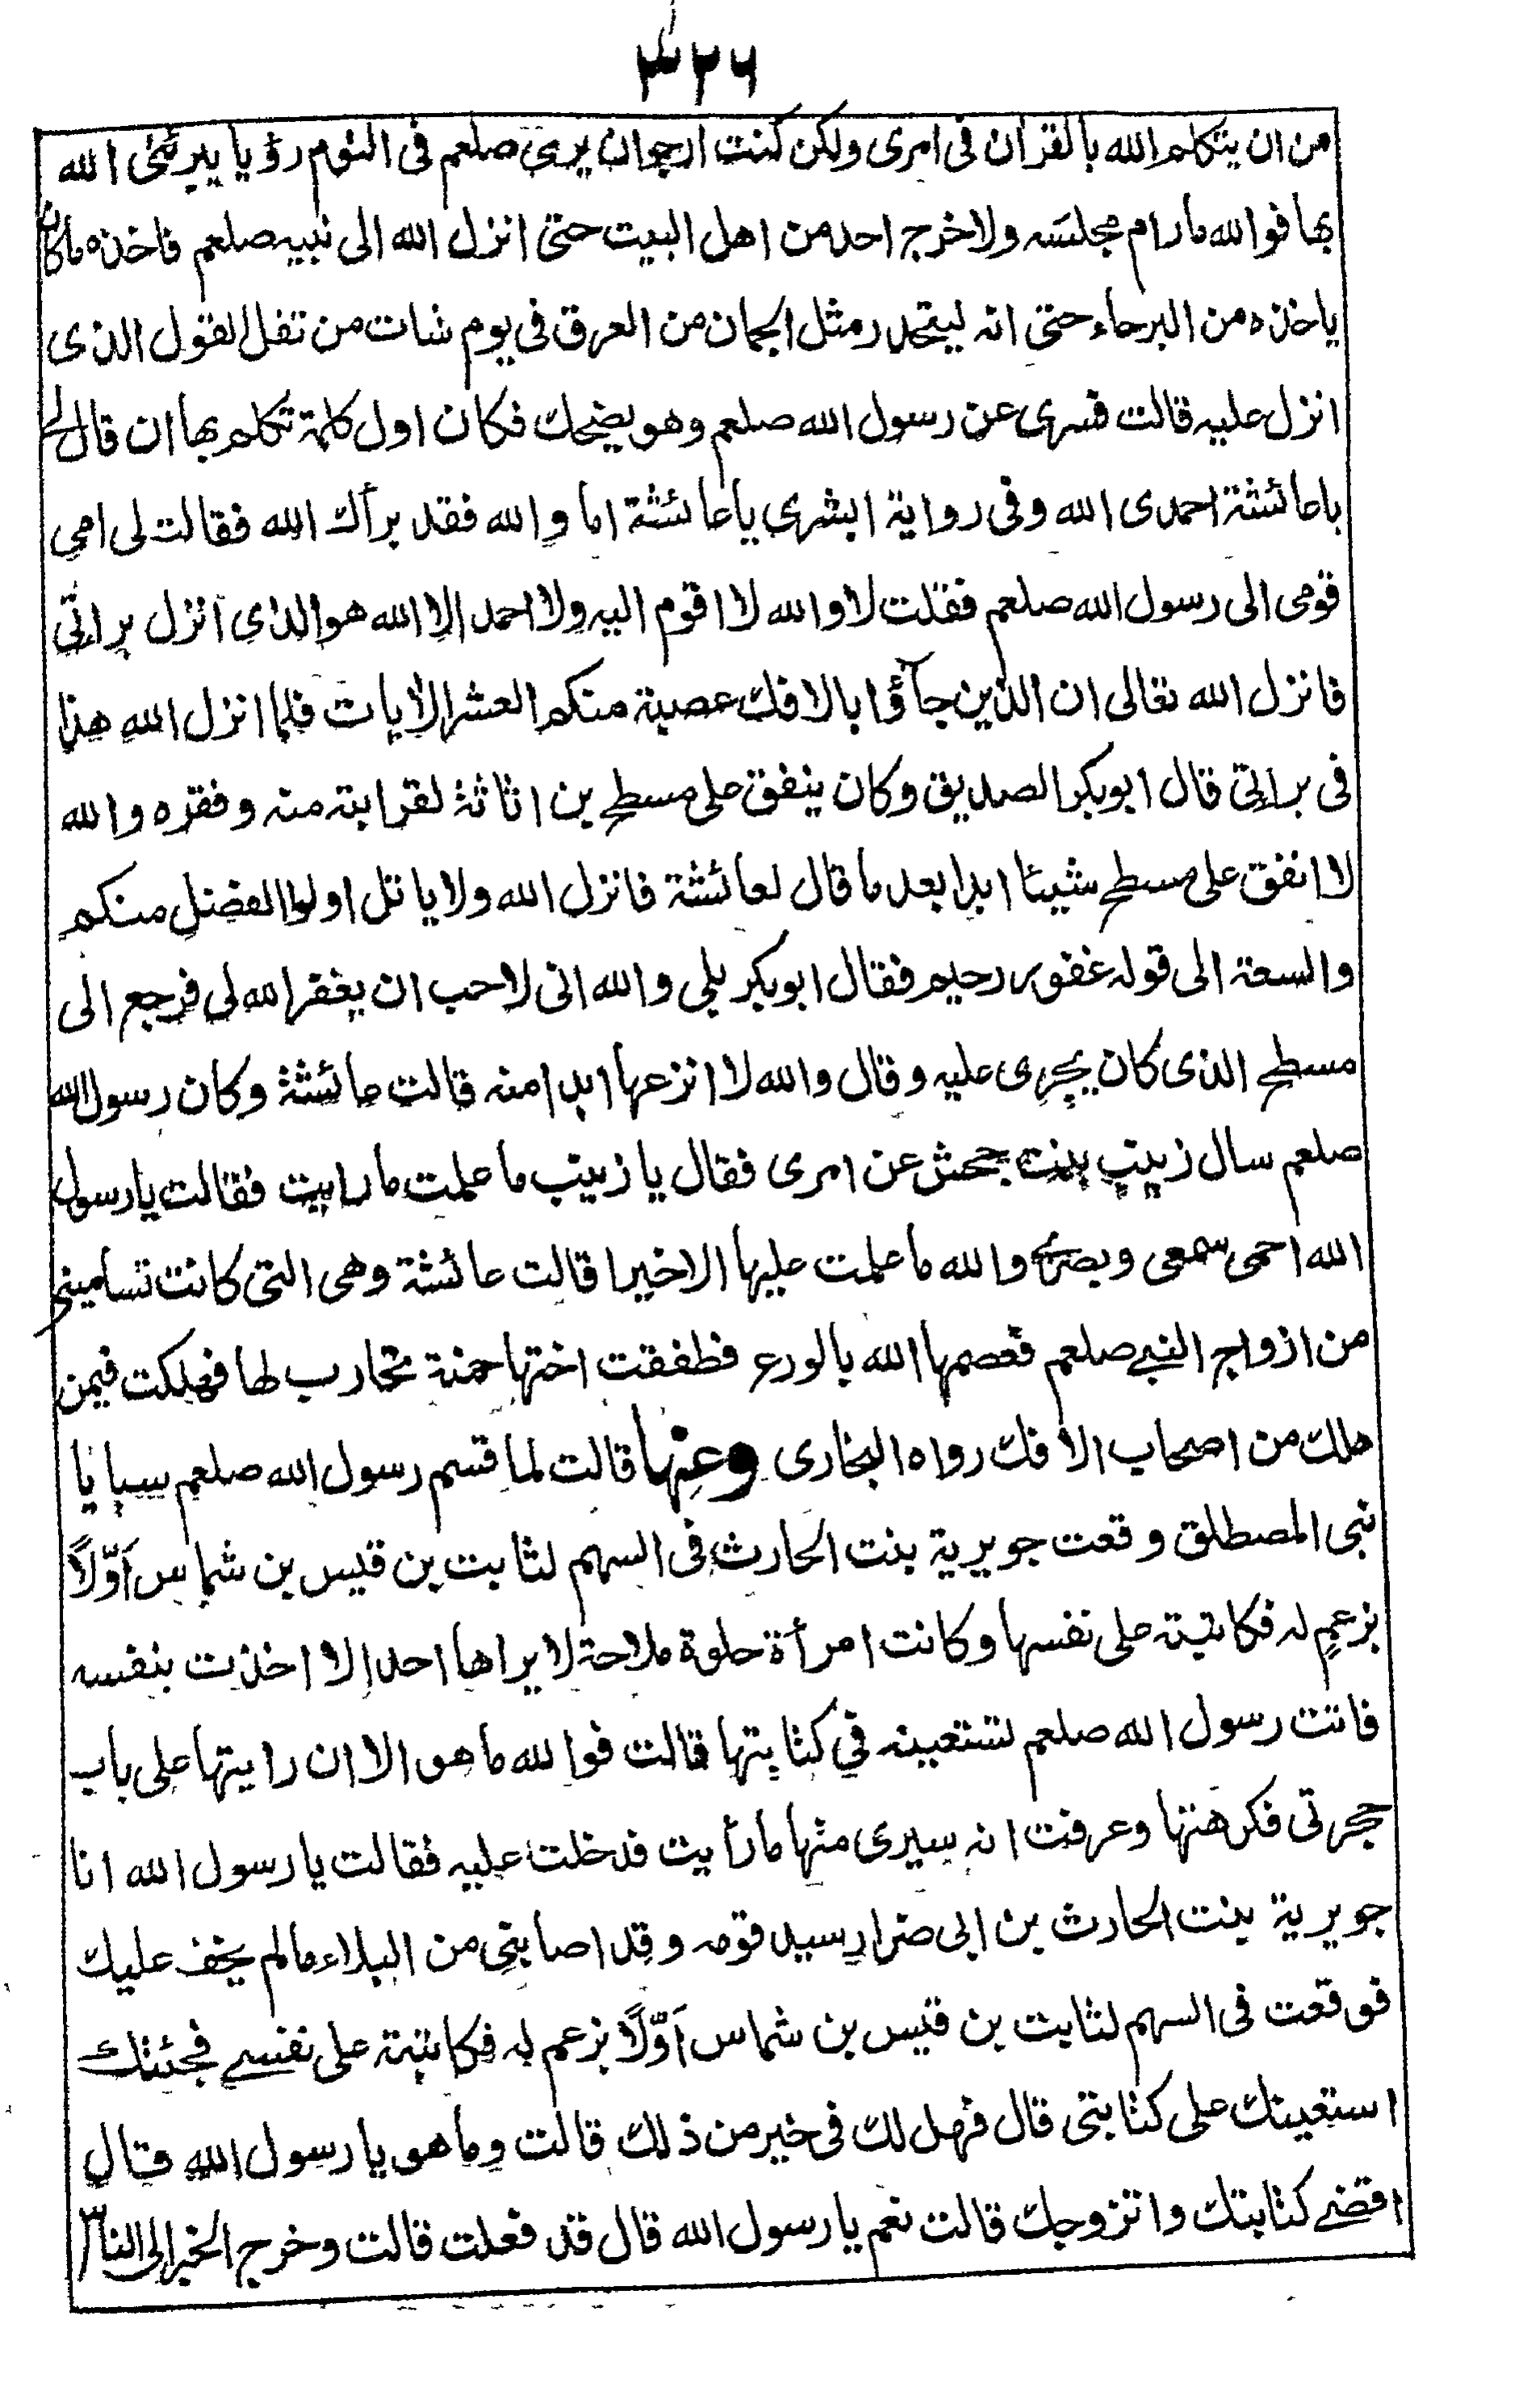 ٣٢٦
من ان يتكلم الله بالقران فى امرى ولكن كنت ارجوان يرى صلعم فى النوم رؤيا يبرئنى الله
بها فوالله مارام مجلسه ولاخرج احد من اهل البيت حتى انزل الله الى نبيه صلعم فاخذه ماكان
ياخذه من البرحاء حتى انه ليتحدر مثل الجمان من العرق فى يوم شات من ثقل القول الذى
انزل عليه قالت فسرى عن رسول الله صلعم وهو يضحك فكان اول كلمة تكلم بها ان قال لى
ياعائشة احمدى الله وفى رواية ابشرى ياعائشة اما والله فقد برأك الله فقالت لى امى
قومى الى رسول الله صلعم فقلت لا والله لا اقوم اليه ولا احمد الا الله هو الذى انزل براتى
فانزل الله تعالى ان الذين جآؤا بالافك عصبة منكم العشر الأيات فلما انزل الله هذا
فى براتى قال ابوبكر الصديق وكان ينفق على مسطح بن اثاثة لقرابته منه وفقره والله
لا انفق على مسطح شيئا ابدا بعد ما قال لعائشة فانزل الله ولا ياتل اولوا الفضل منكم
والسعة الى قوله غفور رحيم فقال ابوبكر بلى والله انى لاحب ان يغفر الله لى فرجع الى
مسطح الذى كان يجرى عليه وقال والله لا انزعها ابدا منه قالت عائشة وكان رسول الله
صلعم سال زينب بنت جحش عن امرى فقال يا زينب ما علمت ما رايت فقالت يا رسول
الله احمى سمعى وبصرى والله ما علمت عليها الا خيرا قالت عائشة وهى التى كانت تسامينى
من ازواج النبى صلعم فعصمها الله بالورع فطفقت اختها حمنة تحارب لها فهلكت فيمن
هلك من اصحاب الافك رواه البخارى وعنها قالت لما قسم رسول الله صلعم سبايا
نبى المصطلق وقعت جويرية بنت الحارث فى السهم لثابت بن قيس بن شماس اَوّلاً
بزعم له فكاتبته على نفسها وكانت امرأة حلوة ملاحة لا يراها احد الا اخذت بنفسه
فاتت رسول الله صلعم لتستعينه فى كتابتها قالت فوالله ما هو الا ان رايتها على باب
حجرتى فكرهتها وعرفت انه سيرى منها ما رأيت فدخلت عليه فقالت يا رسول الله انا
جويرية بنت الحارث بن ابى ضرار سيد قومه وقد اصابنى من البلاء مالم يخف عليك
فوقعت فى السهم لثابت بن قيس بن شماس اَوّلاً بزعم له فكاتبته على نفسى فجئتك
استعينك على كتابتى قال فهل لك فى خير من ذلك قالت وما هو يا رسول الله قال
اقضى كتابتك واتزوجك قالت نعم يا رسول الله قال قد فعلت قالت وخرج الخبر الى الناس